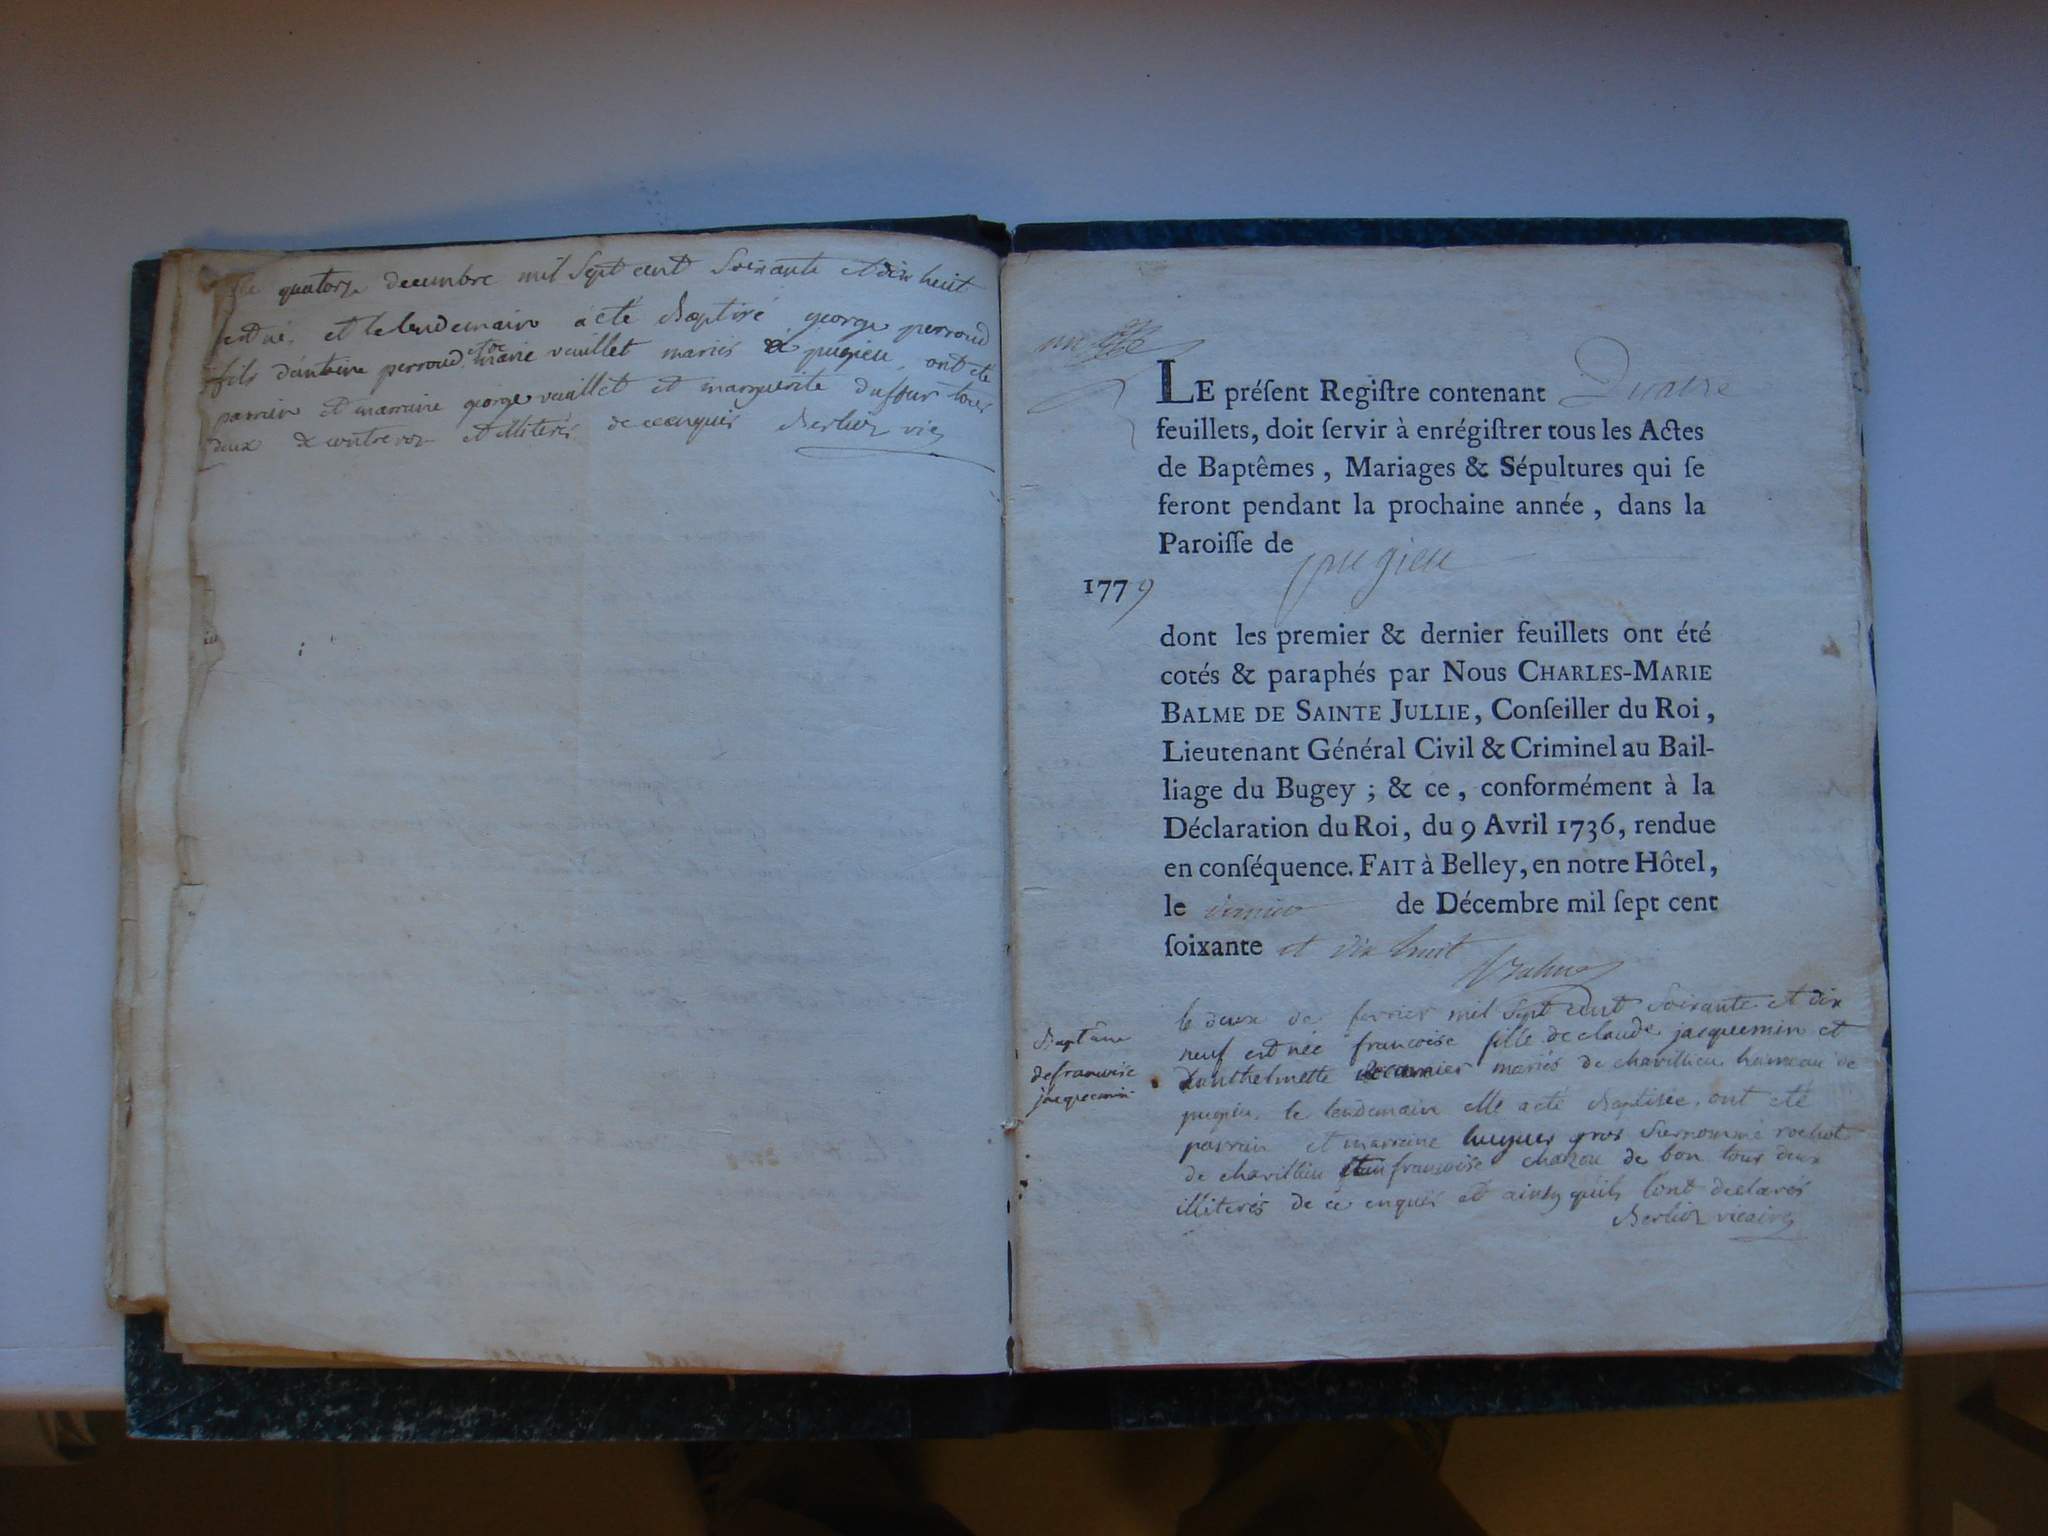 le quatorze decembre mil Sept cent Soixante et dix huit
est né, et le lendemain a eté Baptisé george perroud
fils d'antoine perroud et de marie vuillet mariés de pugieu, ont eté
parrein et marreine george vuillet et marguerite dufour tous
deux de contrevoz et illiterés de ce enquis Berlioz vic
un
LE préſent Regiſtre contenant Quatre
feuillets, doit ſervir à enrégiſtrer tous les Actes
de Baptêmes, Mariages & Sépultures qui ſe
feront pendant la prochaine année, dans la
Paroiſſe de pugieu
1779
dont les premier & dernier feuillets ont été
cotés & paraphés par Nous CHARLES-MARIE
BALME DE SAINTE JULLIE, Conſeiller du Roi,
Lieutenant Général Civil & Criminel au Bail-
liage du Bugey ; & ce, conformément à la
Déclaration du Roi, du 9 Avril 1736, rendue
en conſéquence. FAIT à Belley, en notre Hôtel,
le dernier de Décembre mil ſept cent
ſoixante et dix huit
Balme
Baptême
de francoise
jacquemin
le deux de fevrier mil Sept cent Soixante et dix
neuf est née francoise fille de claude jacquemin et
d'anthelmette mariés de chavillieu hameau de
pugieu, le lendemain elle a eté Baptisée, ont eté
parrein et marreine hugues gros surnommé rochet
de chavillieu francoise chazou de bon tous deux
illiterés de ce enquis et ainsy qu'ils l'ont declarés
Berlioz vicaire